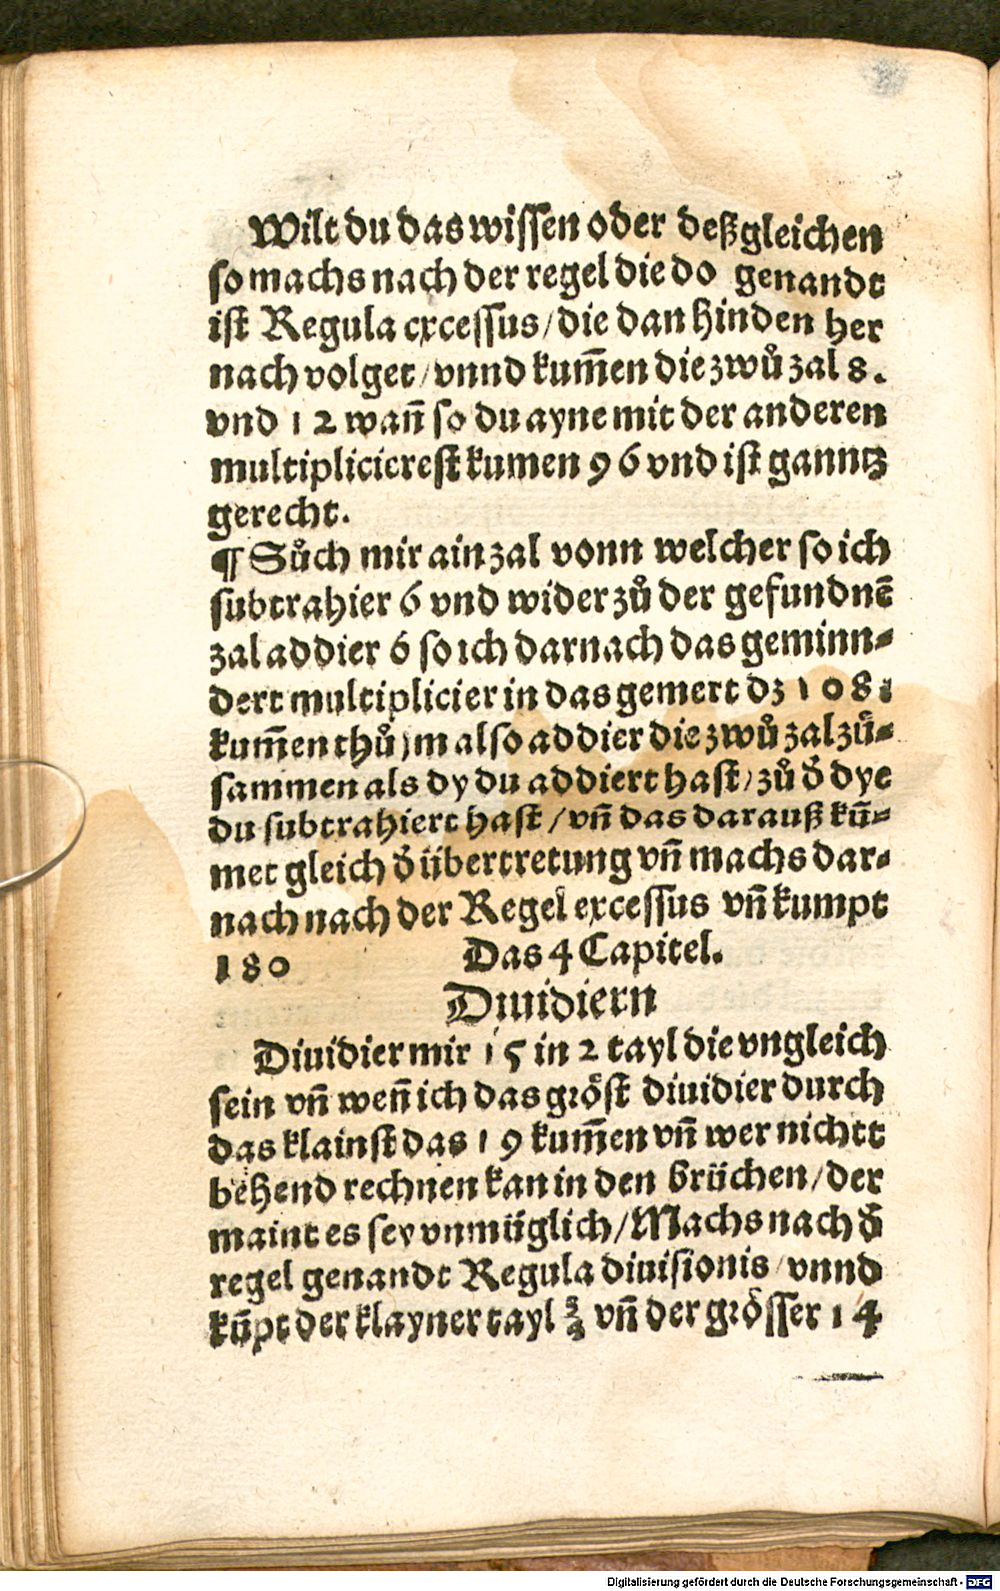 Wilt du das wissen oder deßgleichen
so machs nach der regel die do genandt
ist Regula excessus/die dan hinden her
nach volget/vnnd kum̃en die zwů zal 8.
vnd 12 wañ so du ayne mit der anderen
multiplicierest kumen 96 vnd ist ganntz
gerecht.
¶ Sůch mir ain zal vonn welcher so ich
subtrahier 6 vnd wider zů der gefundnẽ
zal addier 6 so ich darnach das geminn⸗
dert multiplicier in das gemert dz 108
kum̃en thů jm also addier die zwů zal zů⸗
sammen als dy du addiert hast/zů d̃ dye
du subtrahiert hast/vñ das darauß kũ⸗
met gleich d̃ übertretung vñ machs dar⸗
nach nach der Regel excessus vñ kumpt
180 Das 4 Capitel.
Diuidiern
Diuidier mir 15 in 2 tayl die vngleich
sein vñ weñ ich das gröst diuidier durch
das klainst das 19 kum̃en vñ wer nichtt
behend rechnen kan in den brüchen/der
maint es sey vnmüglich/Machs nach d̃
regel genandt Regula diuisionis/vnnd
kũpt der klayner tayl vñ der grösser 14
Digitalisierung gefördert durch die Deutsche Forschungsgemeinschaft - DFG